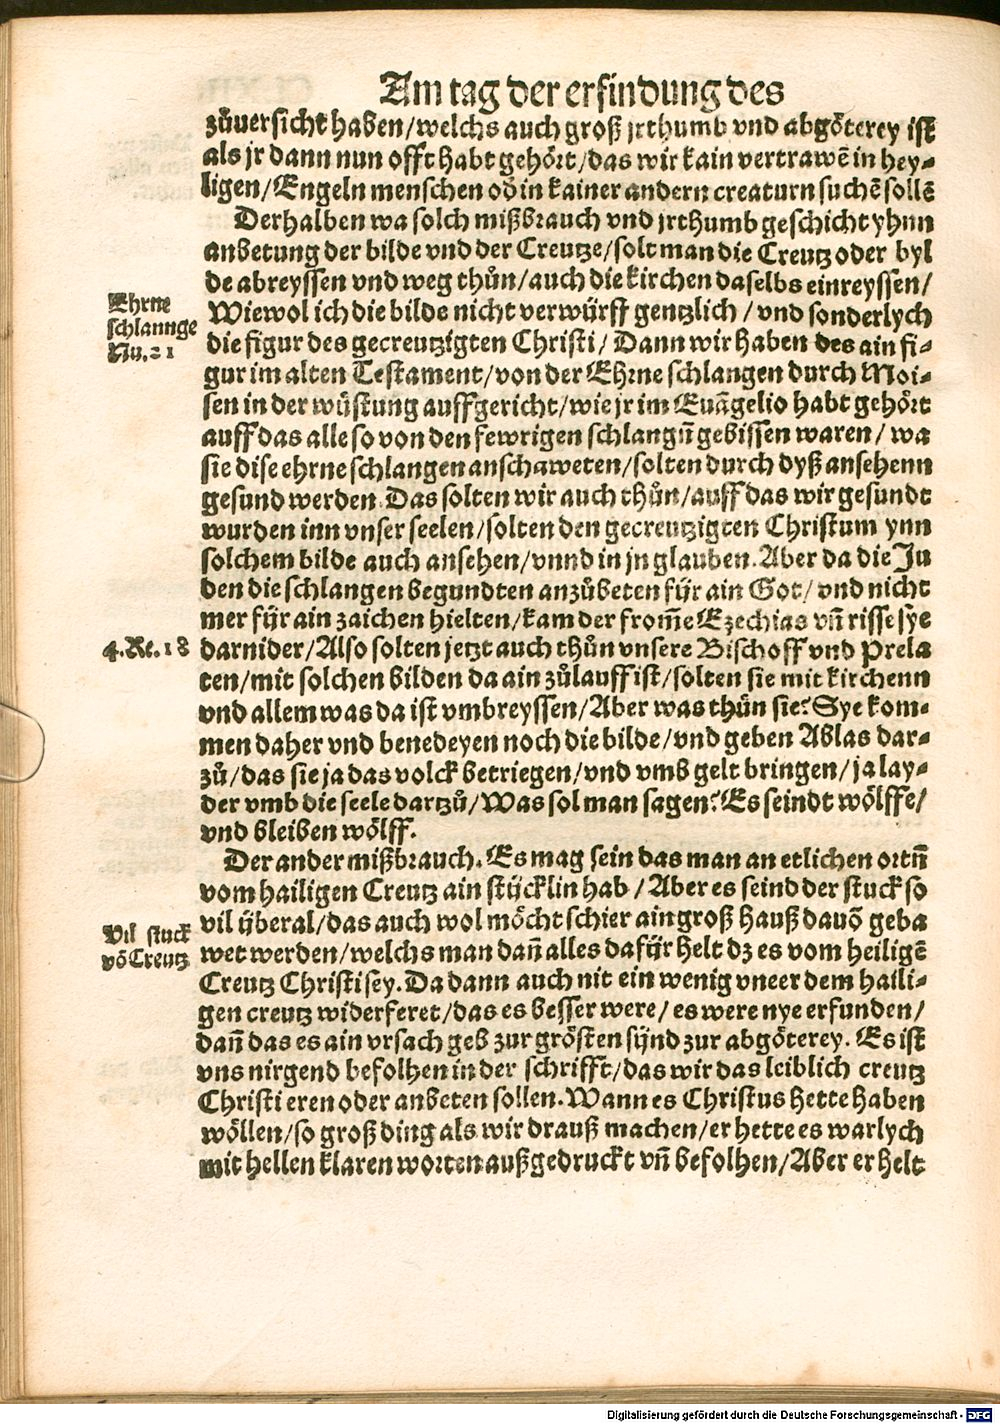 Am tag der erfindung des
zůuersicht haben/welchs auch groß jrthumb vnd abgöterey ist
als jr dann nun offt habt gehört/das wir kain vertrawẽ in hey-
ligen/Engeln menschen oď in kainer andern creaturn suchẽ sollẽ
Derhalben wa solch mißbrauch vnd jrthumb geschicht yhnn
anbetung der bilde vnd der Creutze/solt man die Creutz oder byl
de abreyssen vnd weg thůn/auch die kirchen daselbs einreyssen/
Wiewol ich die bilde nicht verwürff gentzlich/vnd sonderlych
die figur des gecreutzigten Christi/Dann wir haben des ain fi-
gur im alten Testament/von der Ehrne schlangen durch Moi-
sen in der wüstung auffgericht/wie jr im Euãgelio habt gehört
auff das alle so von den fewrigen schlangũ gebissen waren/wa
sie dise ehrne schlangen anschaweten/solten durch dyß ansehenn
gesund werden. Das solten wir auch thůn/auff das wir gesundt
wurden inn vnser seelen/solten den gecreutzigten Christum ynn
solchem bilde auch ansehen/vnnd in jn glauben. Aber da die Ju
den die schlangen begundten anzůbeten für ain Got/vnd nicht
mer für ain zaichen hielten/kam der from̃e Ezechias vñ risse sye
darnider/Also solten jetzt auch thůn vnsere Bischoff vnd Prela
ten/mit solchen bilden da ain zůlauff ist/solten sie mit kirchenn
vnd allem was da ist vmbreyssen/Aber was thůn sie? Sye kom-
men daher vnd benedeyen noch die bilde/vnd geben Ablas dar-
zů/das sie ja das volck betriegen/vnd vmb gelt bringen/ja lay-
der vmb die seele dartzů/Was sol man sagen? Es seindt wölffe/
vnd bleiben wölff.
Der ander mißbrauch. Es mag sein das man an etlichen ortñ
vom hailigen Creutz ain stücklin hab/Aber es seind der stuck so
vil überal/das auch wol möcht schier ain groß hauß dauõ geba
wet werden/welchs man dañ alles dafür helt dz es vom heiligẽ
Creutz Christi sey. Da dann auch nit ein wenig vneer dem haili-
gen creutz widerferet/das es besser were/es were nye erfunden/
dañ das es ain vrsach geb zur grösten sünd zur abgöterey. Es ist
vns nirgend befolhen in der schrifft/das wir das leiblich creutz
Christi eren oder anbeten sollen. Wann es Christus hette haben
wöllen/so groß ding als wir drauß machen/er hette es warlych
mit hellen klaren worten außgedruckt vñ befolhen/Aber er helt
Ehrne
schlannge
Nu.21
4.Re.18
Vil stuck
võ Creutz
Digitalisierung gefördert durch die Deutsche Forschungsgemeinschaft - DFG